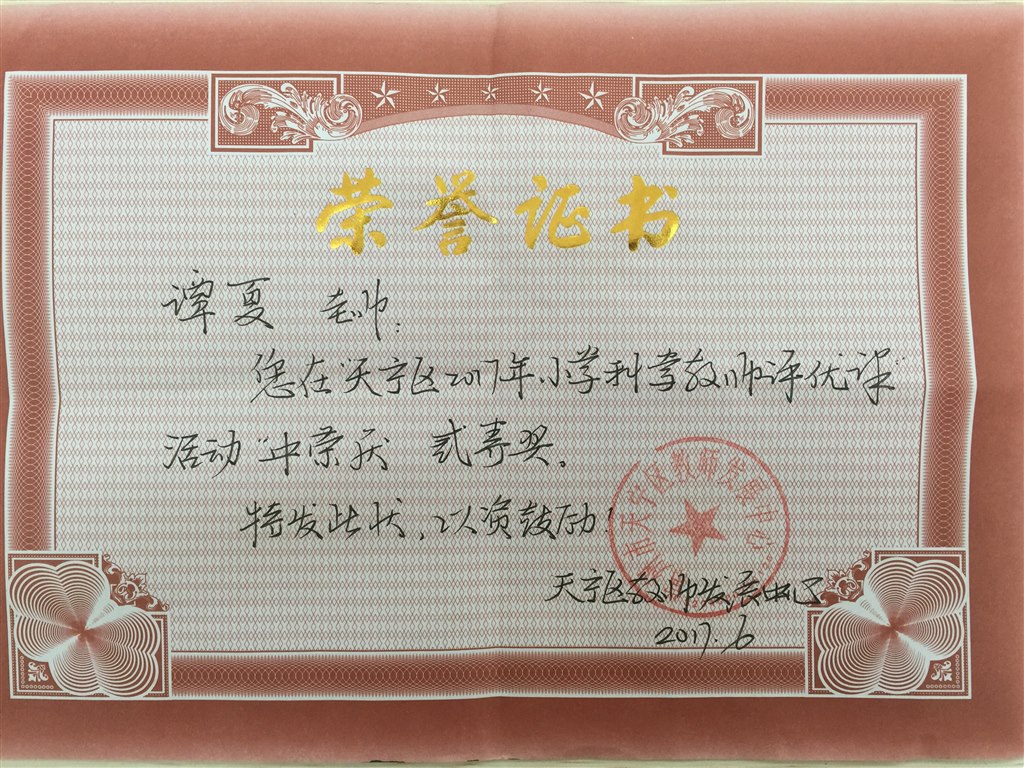 荣誉证书
谭夏 老师:
您在"天宁区2017年小学科学教师评优课"
活动"中荣获 贰等奖。
特发此状,以资鼓励!
市天宁区教师发展中心
天宁区教师发展中心
2017.6